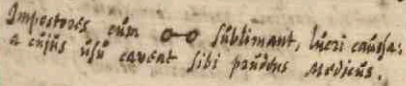 Impostores cùm o-o sublimant, lucri causa:
a cujùs ùsù caveat sibi prùdens Medicùs.